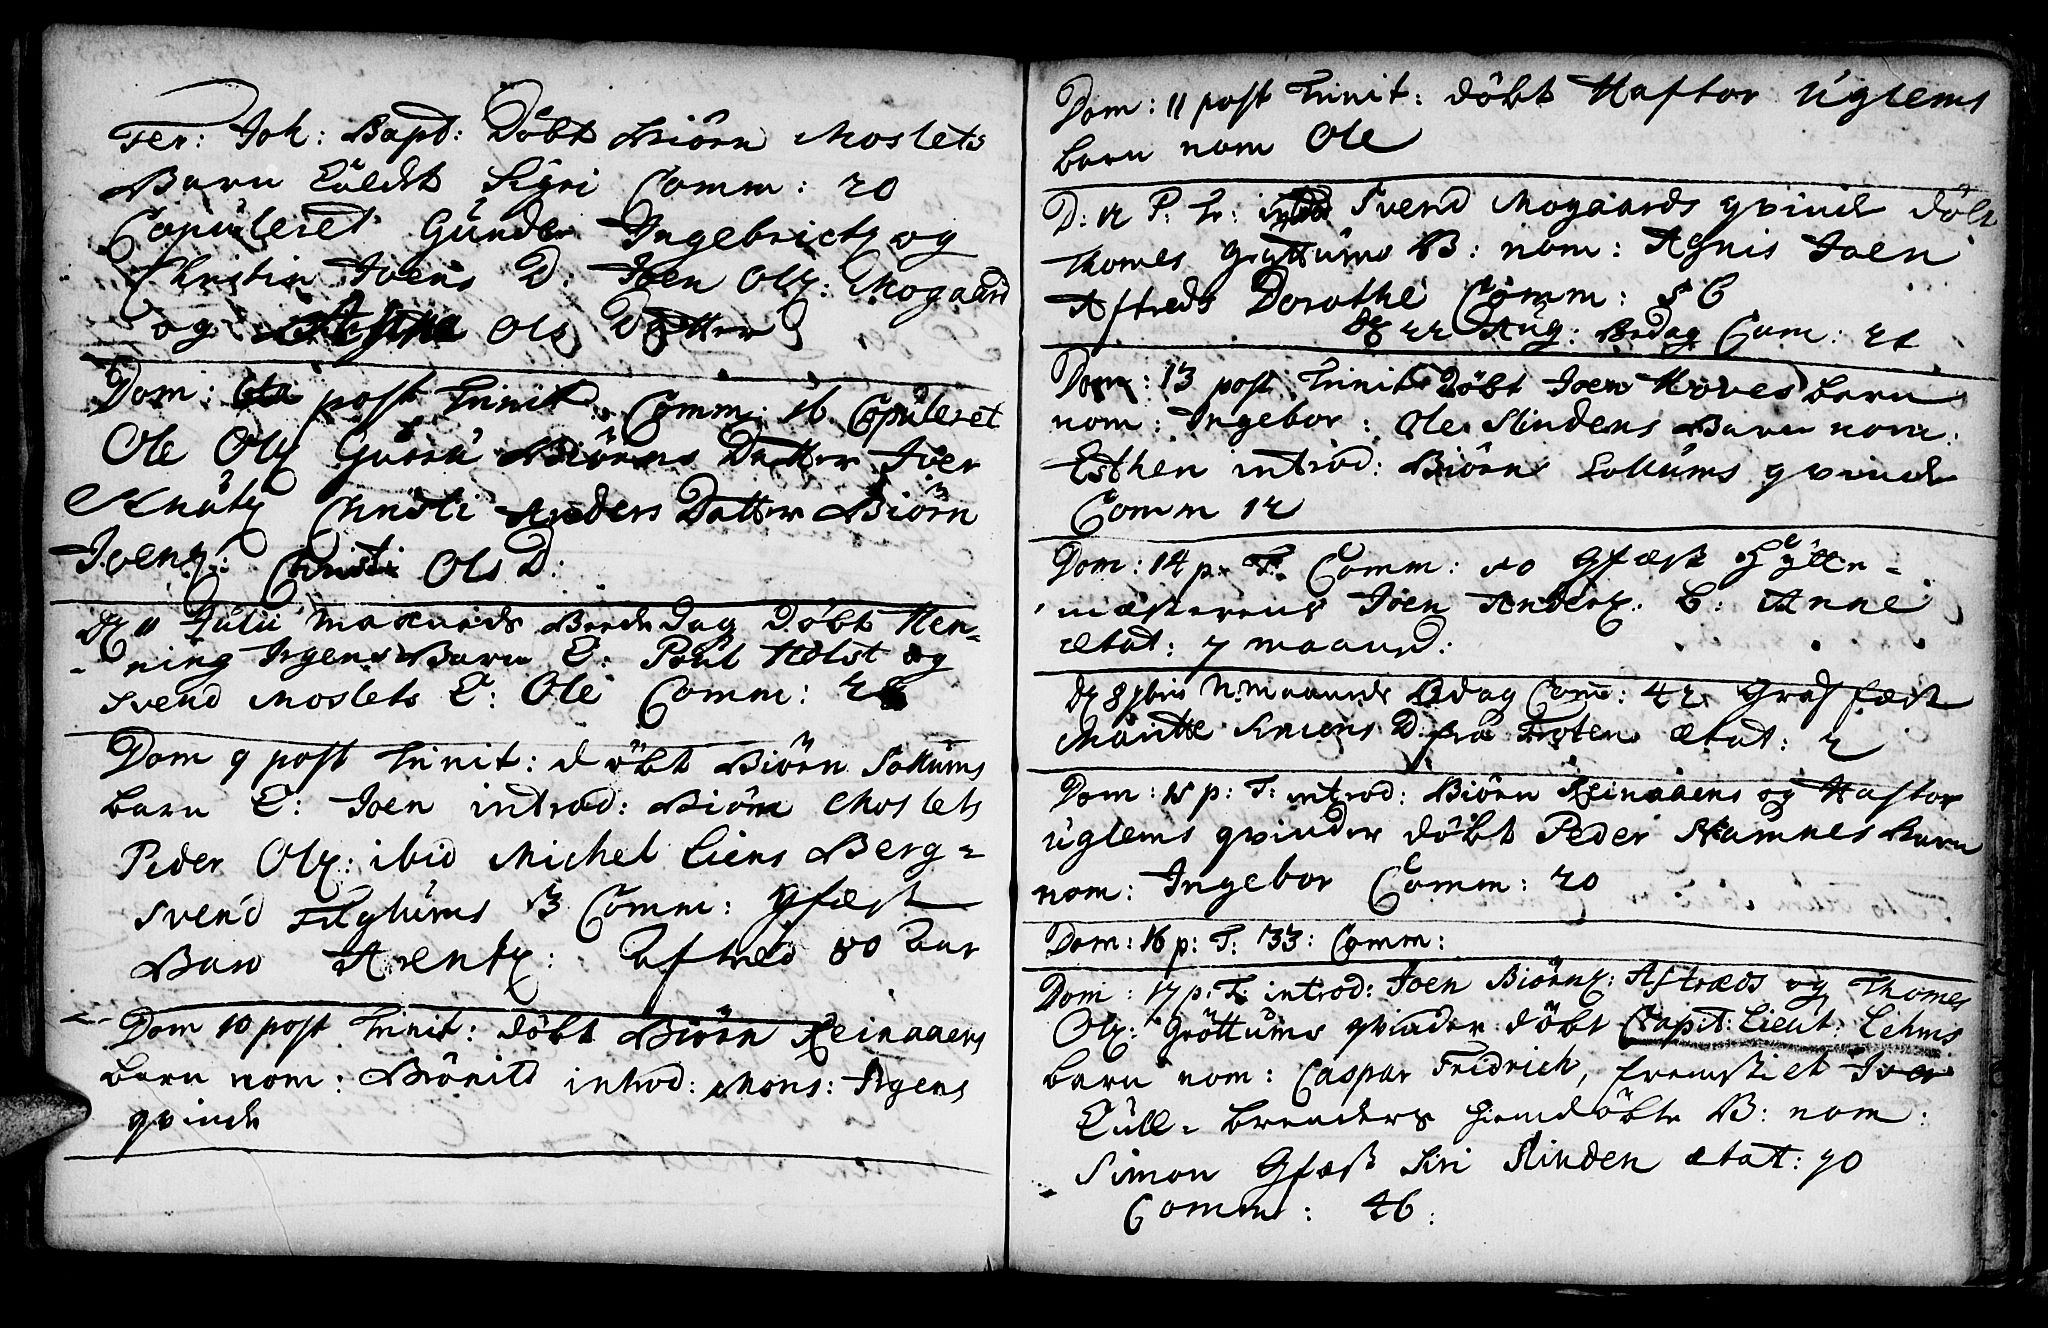 Fer: Joh: Bapt: Döbt Biörn Moslets
Barn kaldt Sigri Comm: 20
Copuleret Gunder Ingebrictz og
Christin Joens D: Joen Olz: Mogaard
og Ols Datter
Dom: 6ta post Trinit: Comm: 16 Copuleret
Ole Olz Guru Biörns Datter Iver
Knutz Christi Anders Datter Biörn
Ivenz: Christi Ols D:
Dz 11 Julii Maaneds Bededag Döbt Hen-
ning Irgens Barn C: Poul Holst og
Svend Moslets C: Ole Comm:
Dom 9 post Trinit: döbt Biörn Sollums
barn C: Joen introd: Biörn Moslets
Peder Olz: ibid Michel Liens Berg-
Svend Fuglums 3 Comm: Gfæst
Baro Arentz: Aftred 80 aar
Dom 10 post Trinit: döbt Biörn Reinaaens
barn nom: Brönild introd: Mons: Irgens
qvinde
Dom: 11 post Trinit: döbt Haftor Uglems
barn nom Ole
D: 12 P: Tr: introd Svend Mogaards qvinde döbt
Thomes Gröttums B: nom: Agnis Joen
Aftreds Dorothe Comm: 56
Dz 22 Aug: Bedag Com: 21
Dom: 13 post Trinit: Döbt Joen Hoves barn
nom: Ingebor: Ole Slindens Barn nom:
Esthen introd: Biörn Sollums qvinde
Comm 12
Dom: 14 p. T. Comm: 10 Gfæst Hytte-
mesterens Joen Anderz: C: Anne
ætat: 7 maaned:
Dz 8 7bris N. Maaneds Bdag Com: 42 Grafæst
Marite Simens D. fra Toten ætat: 2
Dom: 15 p: T: introd: Biörn Reinaaens og Haftor
Uglems qvinder döbt Peder Stamnes barn
nom: Ingebor Comm: 20
Dom: 16 p: T: 33: Comm:
Dom: 17 p: T: introd: Joen Biörnz: Aftræds og Thomes
Olz: Gröttums qvinder döbt Capit: Lieut: Lehms
barn nom: Caspar Fridrich, fremstilet Iver
Kull-brenders hiemdöbte B: nom:
Simon Gfæst Siri Slinden ætat: 70
Comm: 46: